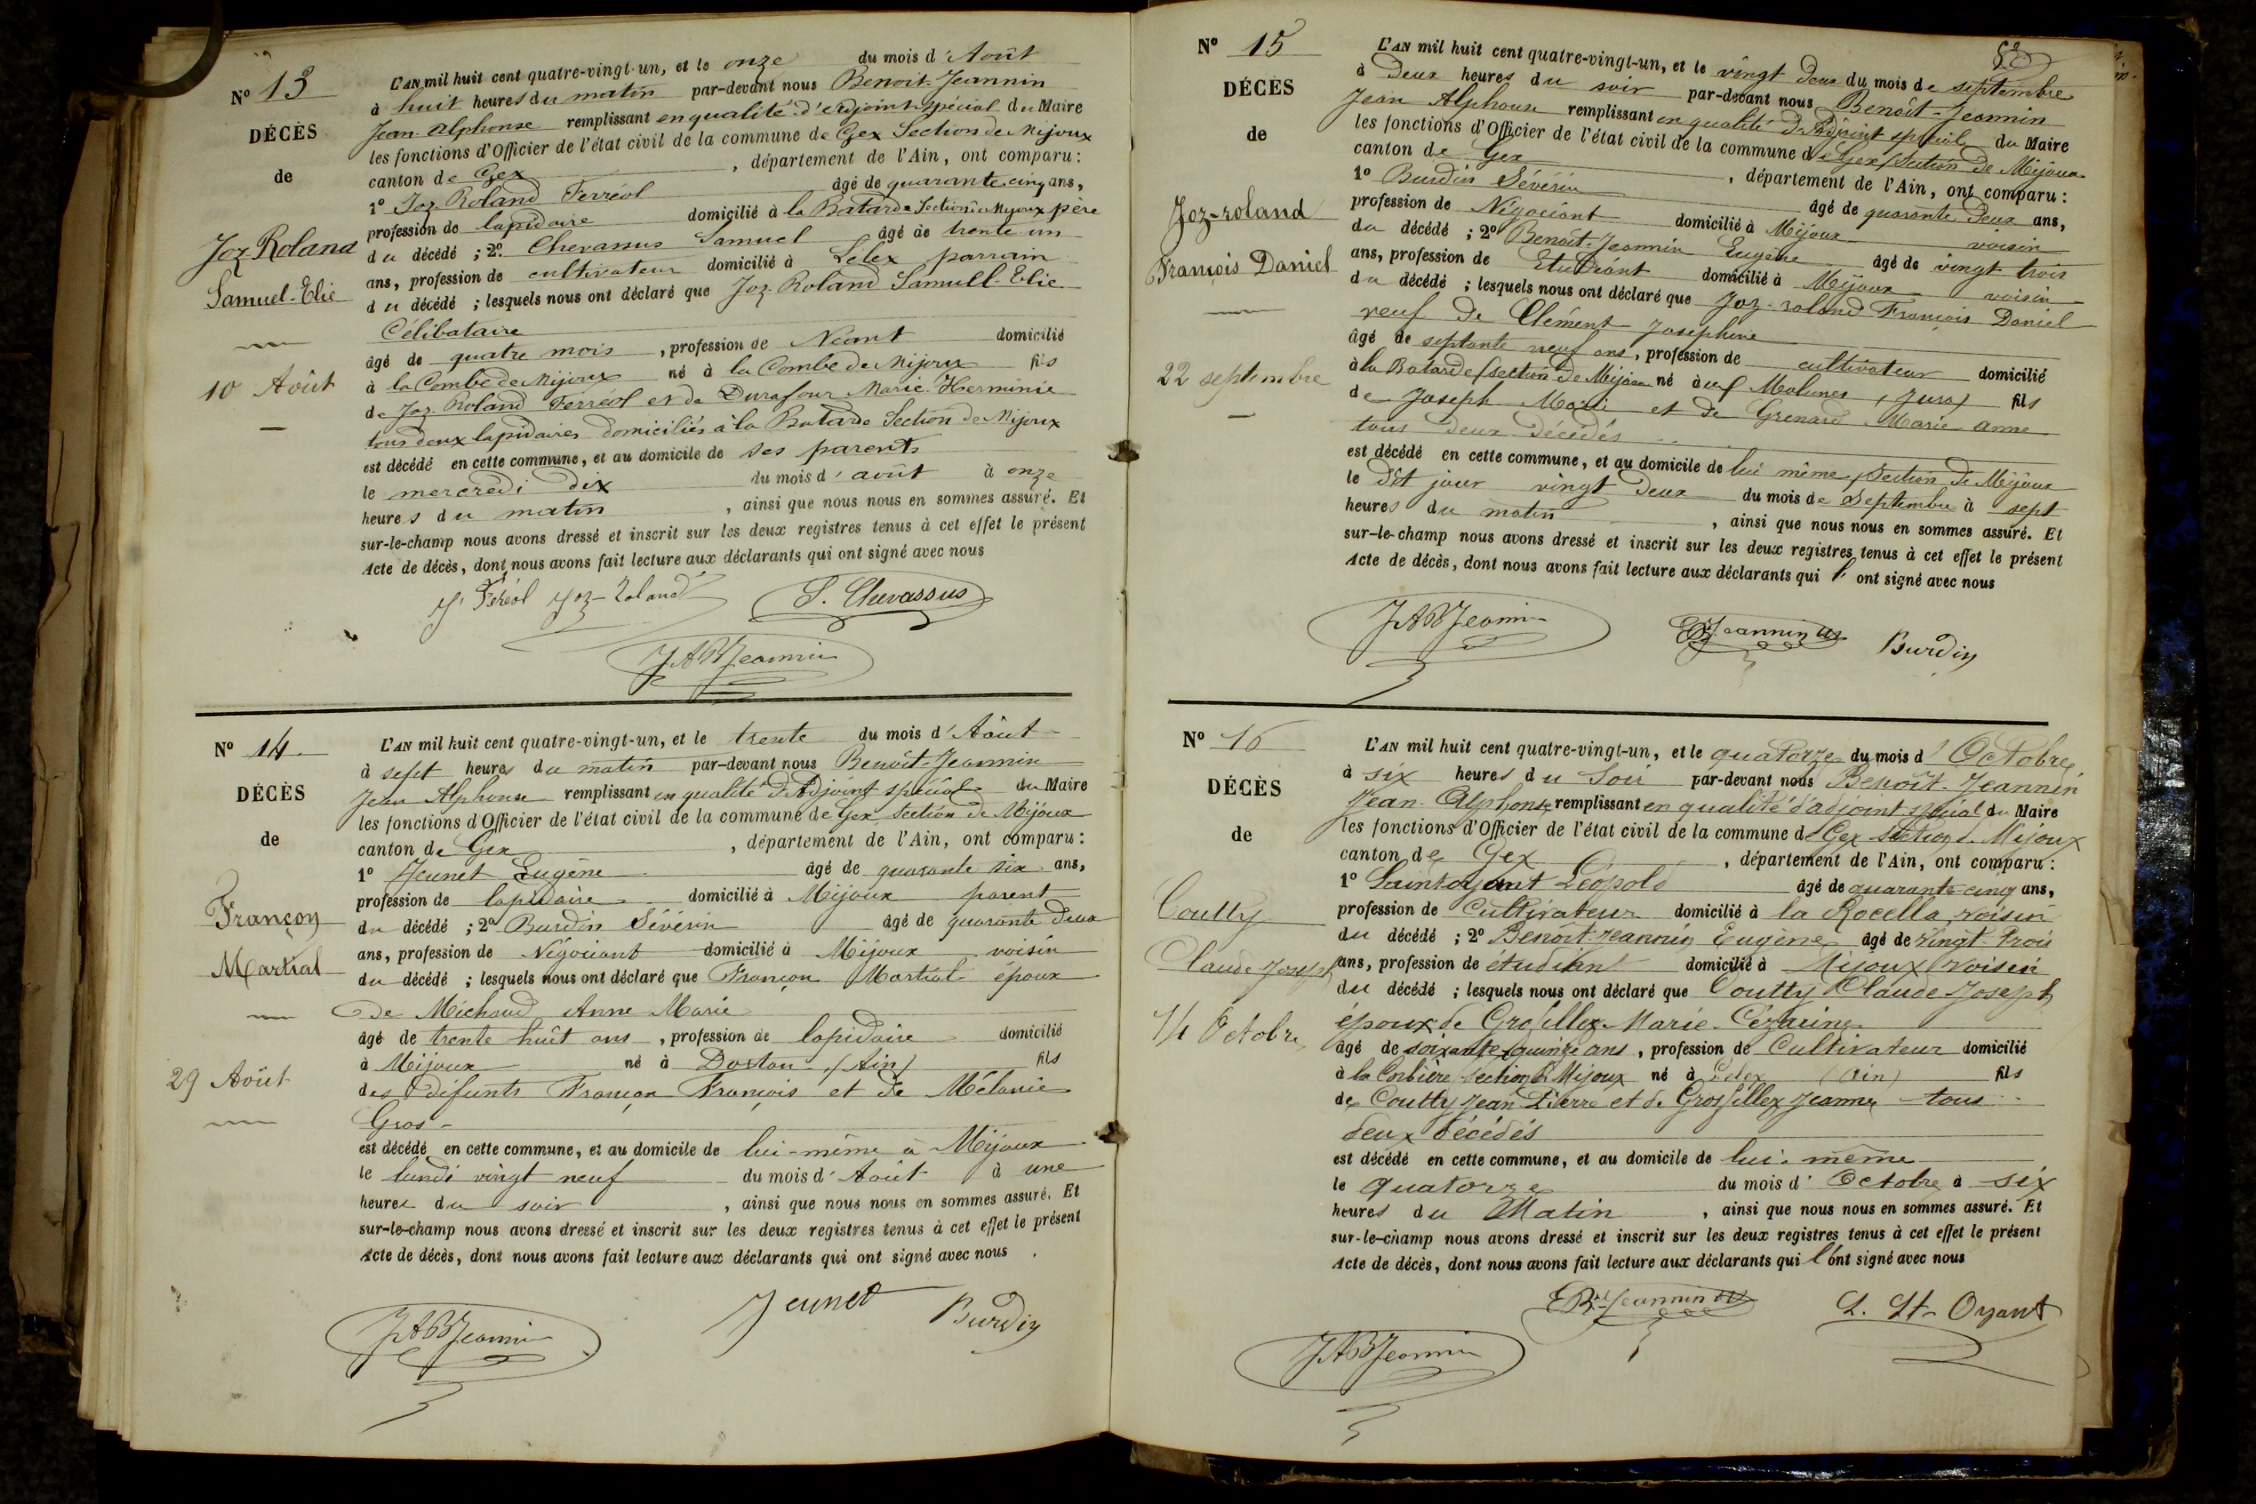 Nº 13
DÉCÈS
de
Joz Roland
Samuel-Elie
10 Août
L'AN mil huit cent quatre-vingt-un, et le onze du mois d'Août
à huit heures du matin par-devant nous Benoit-Jeannin
Jean-Alphonse remplissant en qualité d'adjoint spécial du Maire
les fonctions d'Officier de l'état civil de la commune de Gex Section de Mijoux
canton de Gex, département de l'Ain, ont comparu :
1º Joz Roland Ferréol âgé de quarante cinq ans,
profession de lapidaire domicilié à la Batarde Section de Mijoux père
du décédé ; 2º Chevassus Samuel âgé de trente un
ans, profession de cultivateur domicilié à Lelex parrain
du décédé ; lesquels nous ont déclaré que Joz-Roland Samuell-Elie
Célibataire
âgé de quatre mois, profession de Néant domicilié
à la Combe de Mijoux né à la Combe de Mijoux fils
de Joz-Roland Ferréol et de Durafour Marie-Herminie
tous deux lapidaires domiciliés à la Batarde Section de Mijoux
est décédé en cette commune, et au domicile de ses parents
le mercredi dix du mois d'août à onze
heures du matin, ainsi que nous nous en sommes assuré. Et
sur-le-champ nous avons dressé et inscrit sur les deux registres tenus à cet effet le présent
Acte de décès, dont nous avons fait lecture aux déclarants qui ont signé avec nous
Féréol Joz-Roland S. Chevassus
JABJeannin
Nº 14
DÉCÈS
de
Françon
Martial
29 Août
L'AN mil huit cent quatre-vingt-un, et le trente du mois d'Août
à sept heures du matin par-devant nous Benoît-Jeannin
Jean Alphonse remplissant en qualité d'Adjoint spécial du Maire
les fonctions d'Officier de l'état civil de la commune de Gex Section de Mijoux
canton de Gex, département de l'Ain, ont comparu :
1º Jeunet Eugène âgé de quarante six ans,
profession de lapidaire domicilié à Mijoux parent
du décédé ; 2º Burdin Sévérin âgé de quarante deux
ans, profession de Négociant domicilié à Mijoux voisin
du décédé ; lesquels nous ont déclaré que Françon Martial époux
de Michaud Anne Marie
âgé de trente huit ans, profession de lapidaire domicilié
à Mijoux né à Dortan (Ain) fils
des défunts Françon François et de Mélanie
Gros
est décédé en cette commune, et au domicile de lui-même à Mijoux
le lundi vingt neuf du mois d'Août à une
heures du soir, ainsi que nous nous en sommes assuré. Et
sur-le-champ nous avons dressé et inscrit sur les deux registres tenus à cet effet le présent
Acte de décès, dont nous avons fait lecture aux déclarants qui ont signé avec nous.
JABJeannin Jeunet Burdin
Nº 15
DÉCÈS
de
Joz-roland
François Daniel
22 septembre
L'AN mil huit cent quatre-vingt-un, et le vingt deux du mois de septembre
à Deux heures du soir par-devant nous Benoît-Jeannin
Jean Alphonse remplissant en qualité d'Adjoint spécial du Maire
les fonctions d'Officier de l'état civil de la commune de Gex Section de Mijoux
canton de Gex, département de l'Ain, ont comparu :
1º Burdin Sévérin âgé de quarante Deux ans,
profession de Négociant domicilié à Mijoux voisin
du décédé ; 2º Benoît-Jeannin Eugène âgé de vingt trois
ans, profession de Etudiant domicilié à Mijoux voisin
du décédé ; lesquels nous ont déclaré que Joz-roland François Daniel
veuf de Clément Josephine
âgé de septante neuf ans, profession de cultivateur domicilié
à la Batarde (section de Mijoux né aux Molunes (Jura) fils
de Joseph Marie et de Grenard Marie-Anne
tous deux décédés
est décédé en cette commune, et au domicile de lui même, section de Mijoux
le dit jour vingt Deux du mois de Septembre à sept
heures du matin, ainsi que nous nous en sommes assuré. Et
sur-le-champ nous avons dressé et inscrit sur les deux registres tenus à cet effet le présent
Acte de décès, dont nous avons fait lecture aux déclarants qui l'ont signé avec nous
JABJeannin EBJeannin Burdin
Nº 16
DÉCÈS
de
Coutty
Claude Joseph
14 Octobre
L'AN mil huit cent quatre-vingt-un, et le quatorze du mois d'Octobre
à six heures du Soir par-devant nous Benoît-Jeannin
Jean-Alphonse remplissant en qualité d'adjoint spécial du Maire
les fonctions d'Officier de l'état civil de la commune de Gex section de Mijoux
canton de Gex, département de l'Ain, ont comparu :
1º Saintoyant Léopold âgé de quarante-cinq ans,
profession de Cultivateur domicilié à la Rocella voisin
du décédé ; 2º Benoît-Jeannin Eugène âgé de vingt-trois
ans, profession de étudiant domicilié à Mijoux voisin
du décédé ; lesquels nous ont déclaré que Coutty Claude-Joseph
époux de Grosfillex Marie-Cézarine
âgé de soixante-quinze ans, profession de Cultivateur domicilié
à la Corbière section de Mijoux né à Lelex (Ain) fils
de Coutty Jean Pierre et de Grosfillex Jeanne tous
deux décédés
est décédé en cette commune, et au domicile de lui-même
le quatorze du mois d'Octobre à six
heures du Matin, ainsi que nous nous en sommes assuré. Et
sur-le-champ nous avons dressé et inscrit sur les deux registres tenus à cet effet le présent
Acte de décès, dont nous avons fait lecture aux déclarants qui l'ont signé avec nous
EBJeannin L. St-Oyant
JABJeannin